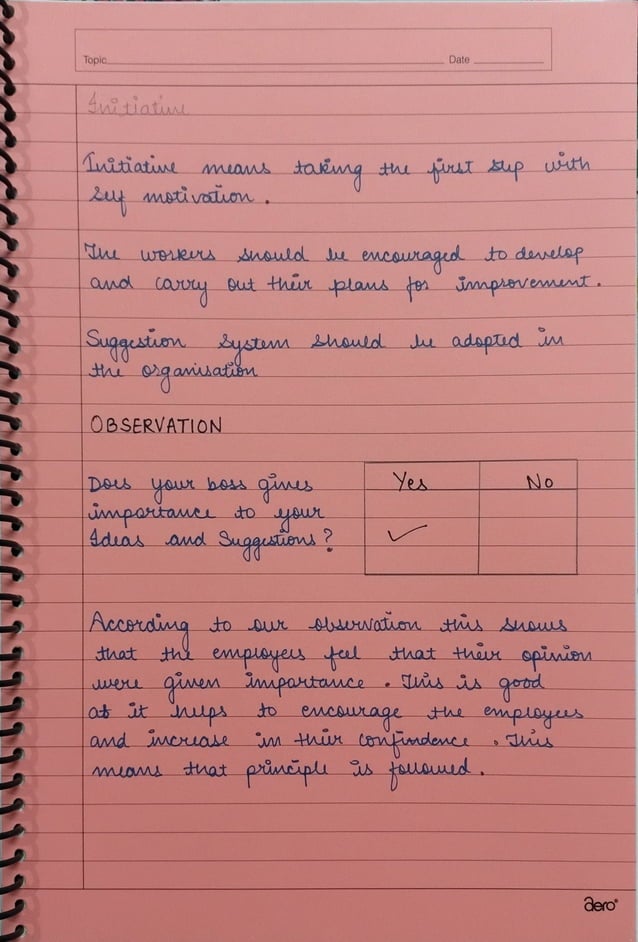 Topic Date
Initiative
Initiative means taking the first step with
self motivation.
The workers should be encouraged to develop
and carry out their plans for improvement.
Suggestion System should be adopted in
the organisation
OBSERVATION
Does your boss gives
importance to your
Ideas and Suggestions?
Yes No
✓
According to our observation this shows
that the employees feel that their opinion
were given importance. This is good
as it helps to encourage the employees
and increase in their confindence. This
means that principle is followed.
aero